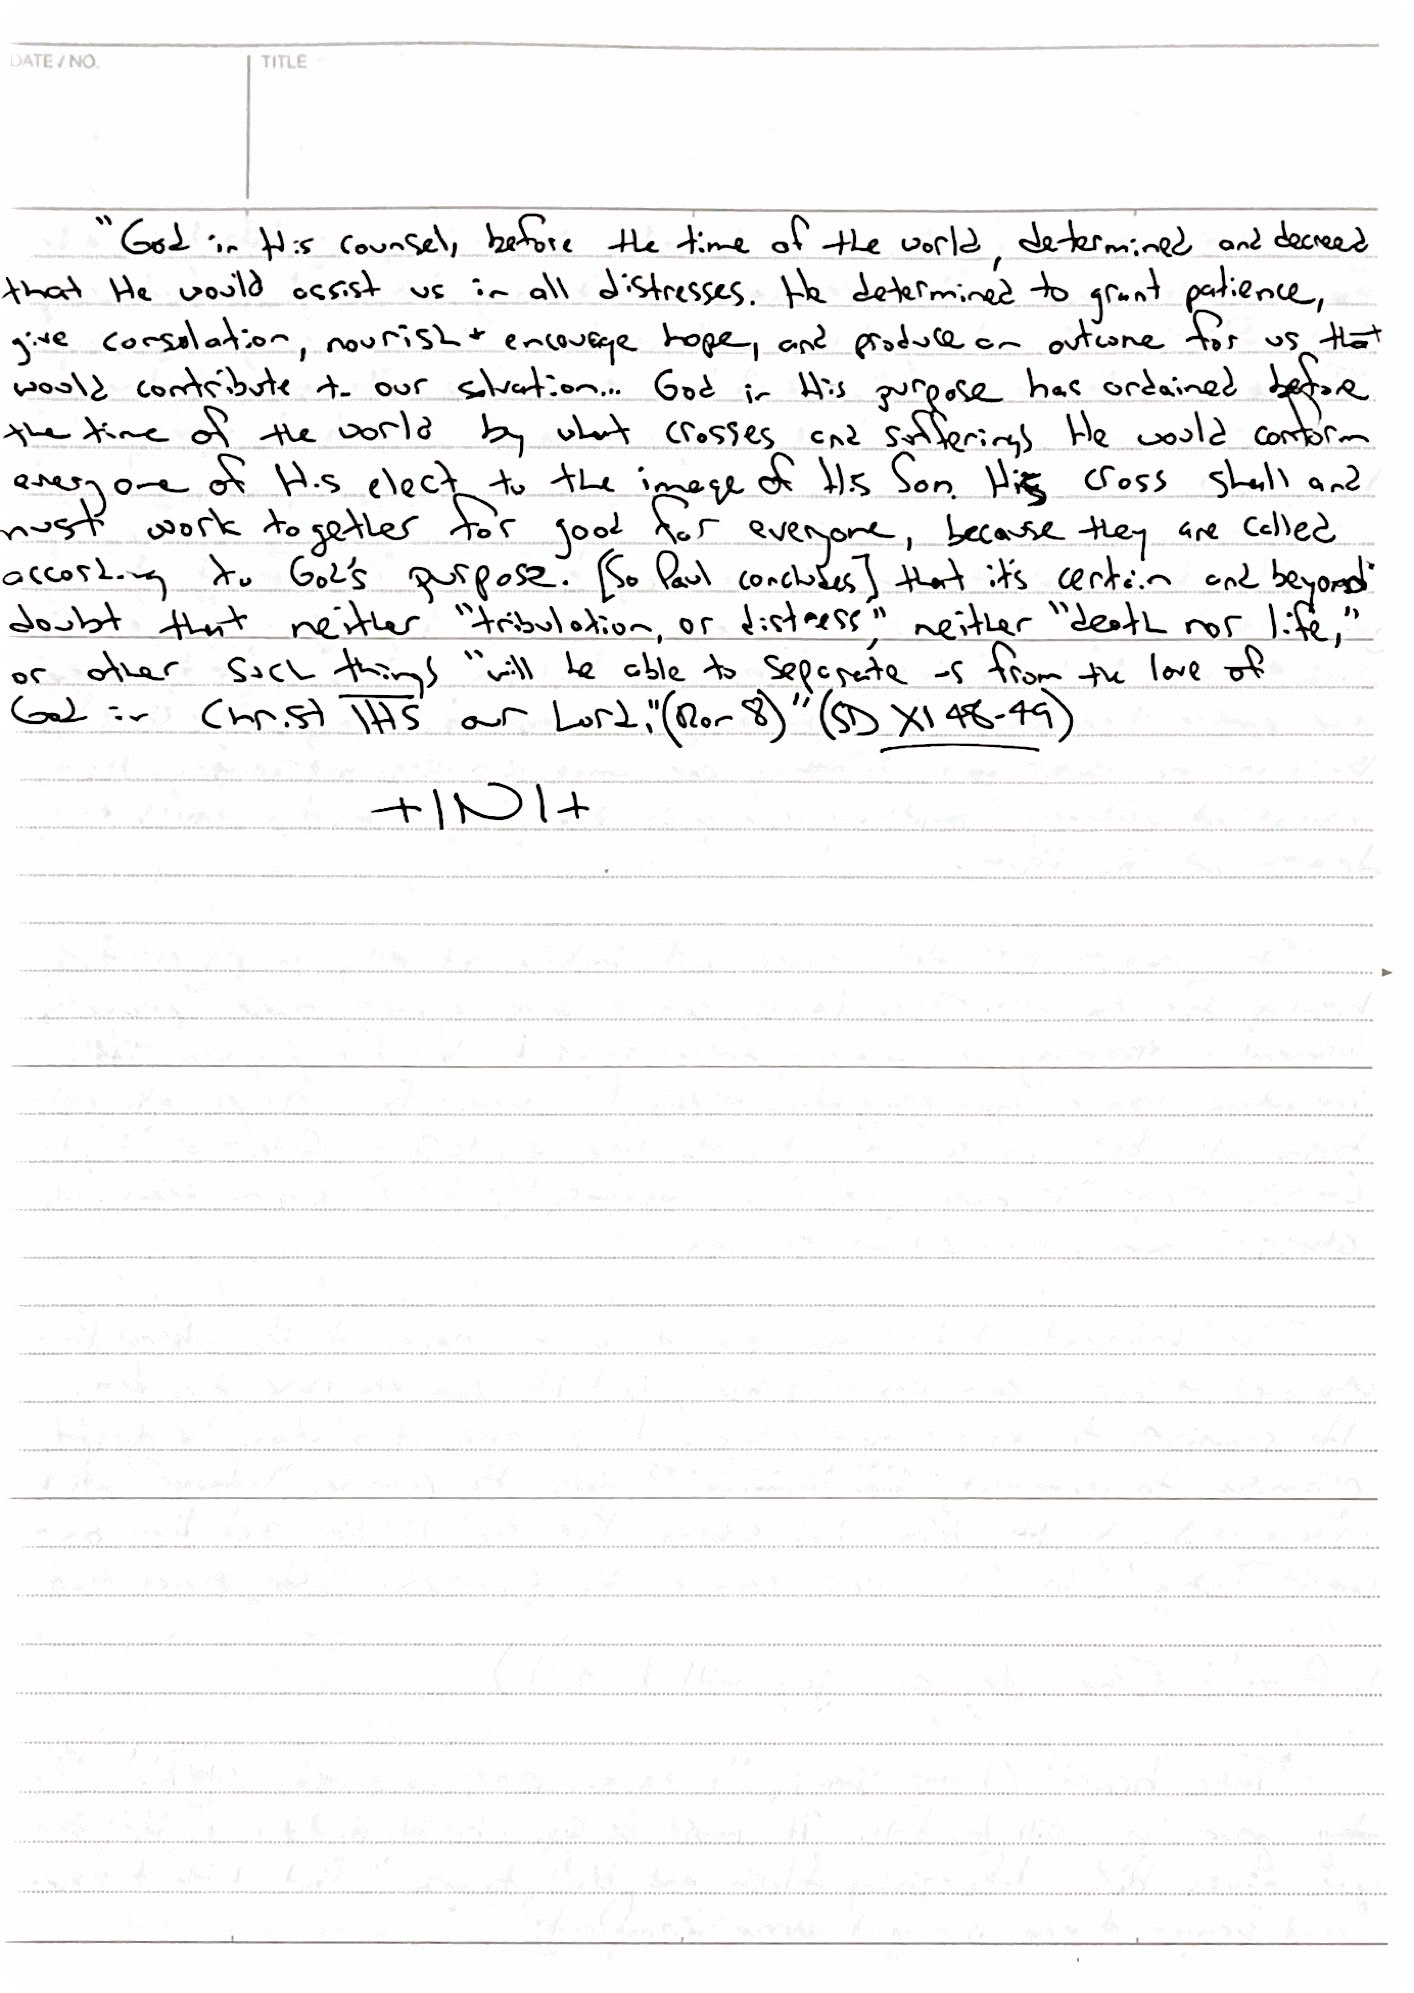 DATE / NO.
TITLE
"God in His counsel, before the time of the world, determined and decreed
that He would assist us in all distresses. He determined to grant patience,
give consolation, nourish + encourage hope, and produce an outcome for us that
would contribute to our salvation... God in His purpose has ordained before
the time of the world by what crosses and sufferings He would conform
everyone of His elect to the image of His Son. His cross shall and
must work together for good for everyone, because they are called
according to God's purpose. [So Paul concludes] that it's certain and beyond
doubt that neither "tribulation, or distress," neither "death nor life,"
or other such things "will be able to separate us from the love of
God in Christ IHS our Lord." (Rom 8)" (SD XI 48-49)
+INI+